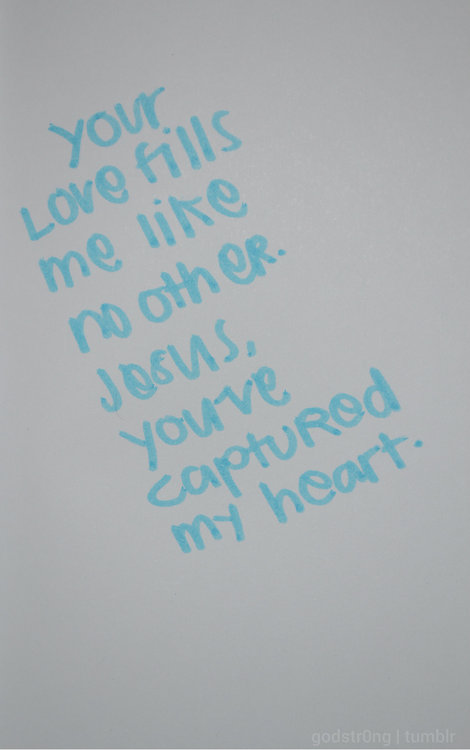 your
Love fills
me like
no other.
Jesus,
you've
captured
my heart.
godstr0ng | tumblr